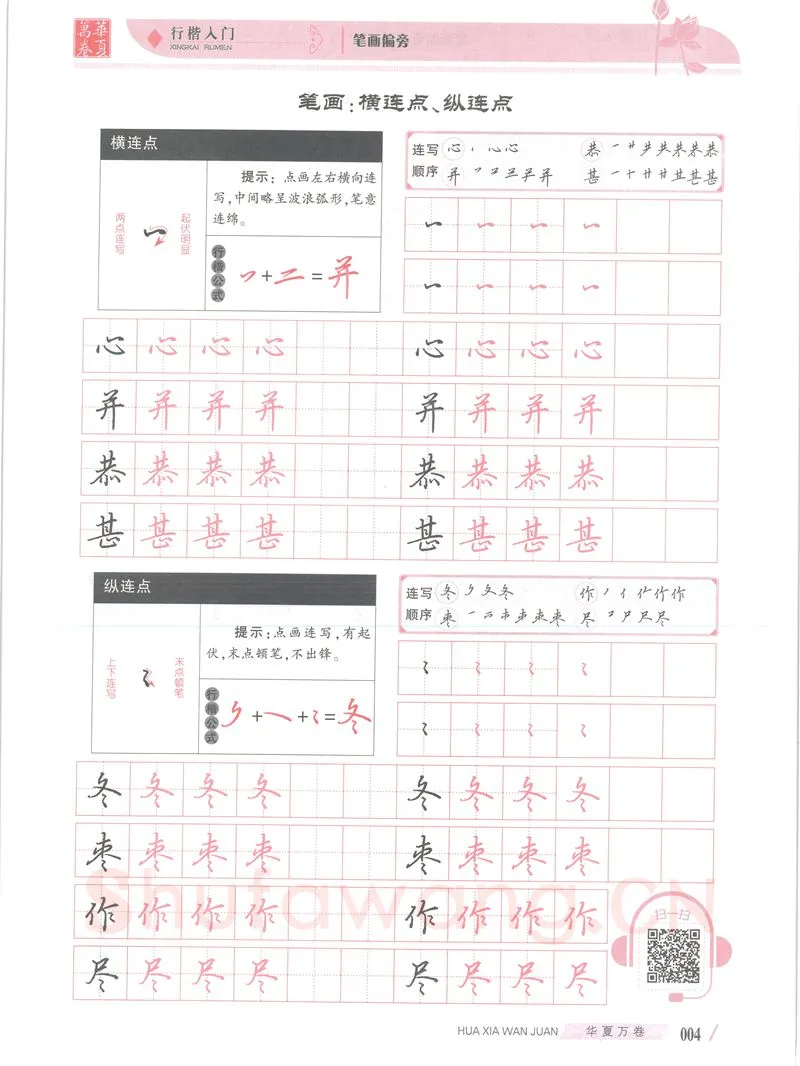 華夏萬卷
行楷入门
XINGKAI RUMEN
笔画偏旁
笔画：横连点、纵连点
横连点
两点连写
起伏明显
提示：点画左右横向连
写，中间略呈波浪弧形，笔意
连绵。
行楷公式
+ = 并
连写 心 心心 恭 共恭恭
顺序 并 并并 甚 一十廿甘其甚甚
心心心心 心心心心
并并并并 并并并并
恭恭恭恭 恭恭恭恭
甚甚甚甚 甚甚甚甚
纵连点
上下连写
末点顿笔
提示：点画连写，有起
伏，末点顿笔，不出锋。
行楷公式
+ + = 冬
连写 冬 夂冬 作 亻作作
顺序 枣 枣枣 尽 尸尺尽
冬冬冬冬 冬冬冬冬
枣枣枣枣 枣枣枣枣
作作作作 作作作作
尽尽尽尽 尽尽尽尽
Shufawang.CN
扫一扫
HUA XIA WAN JUAN 华夏万卷 004